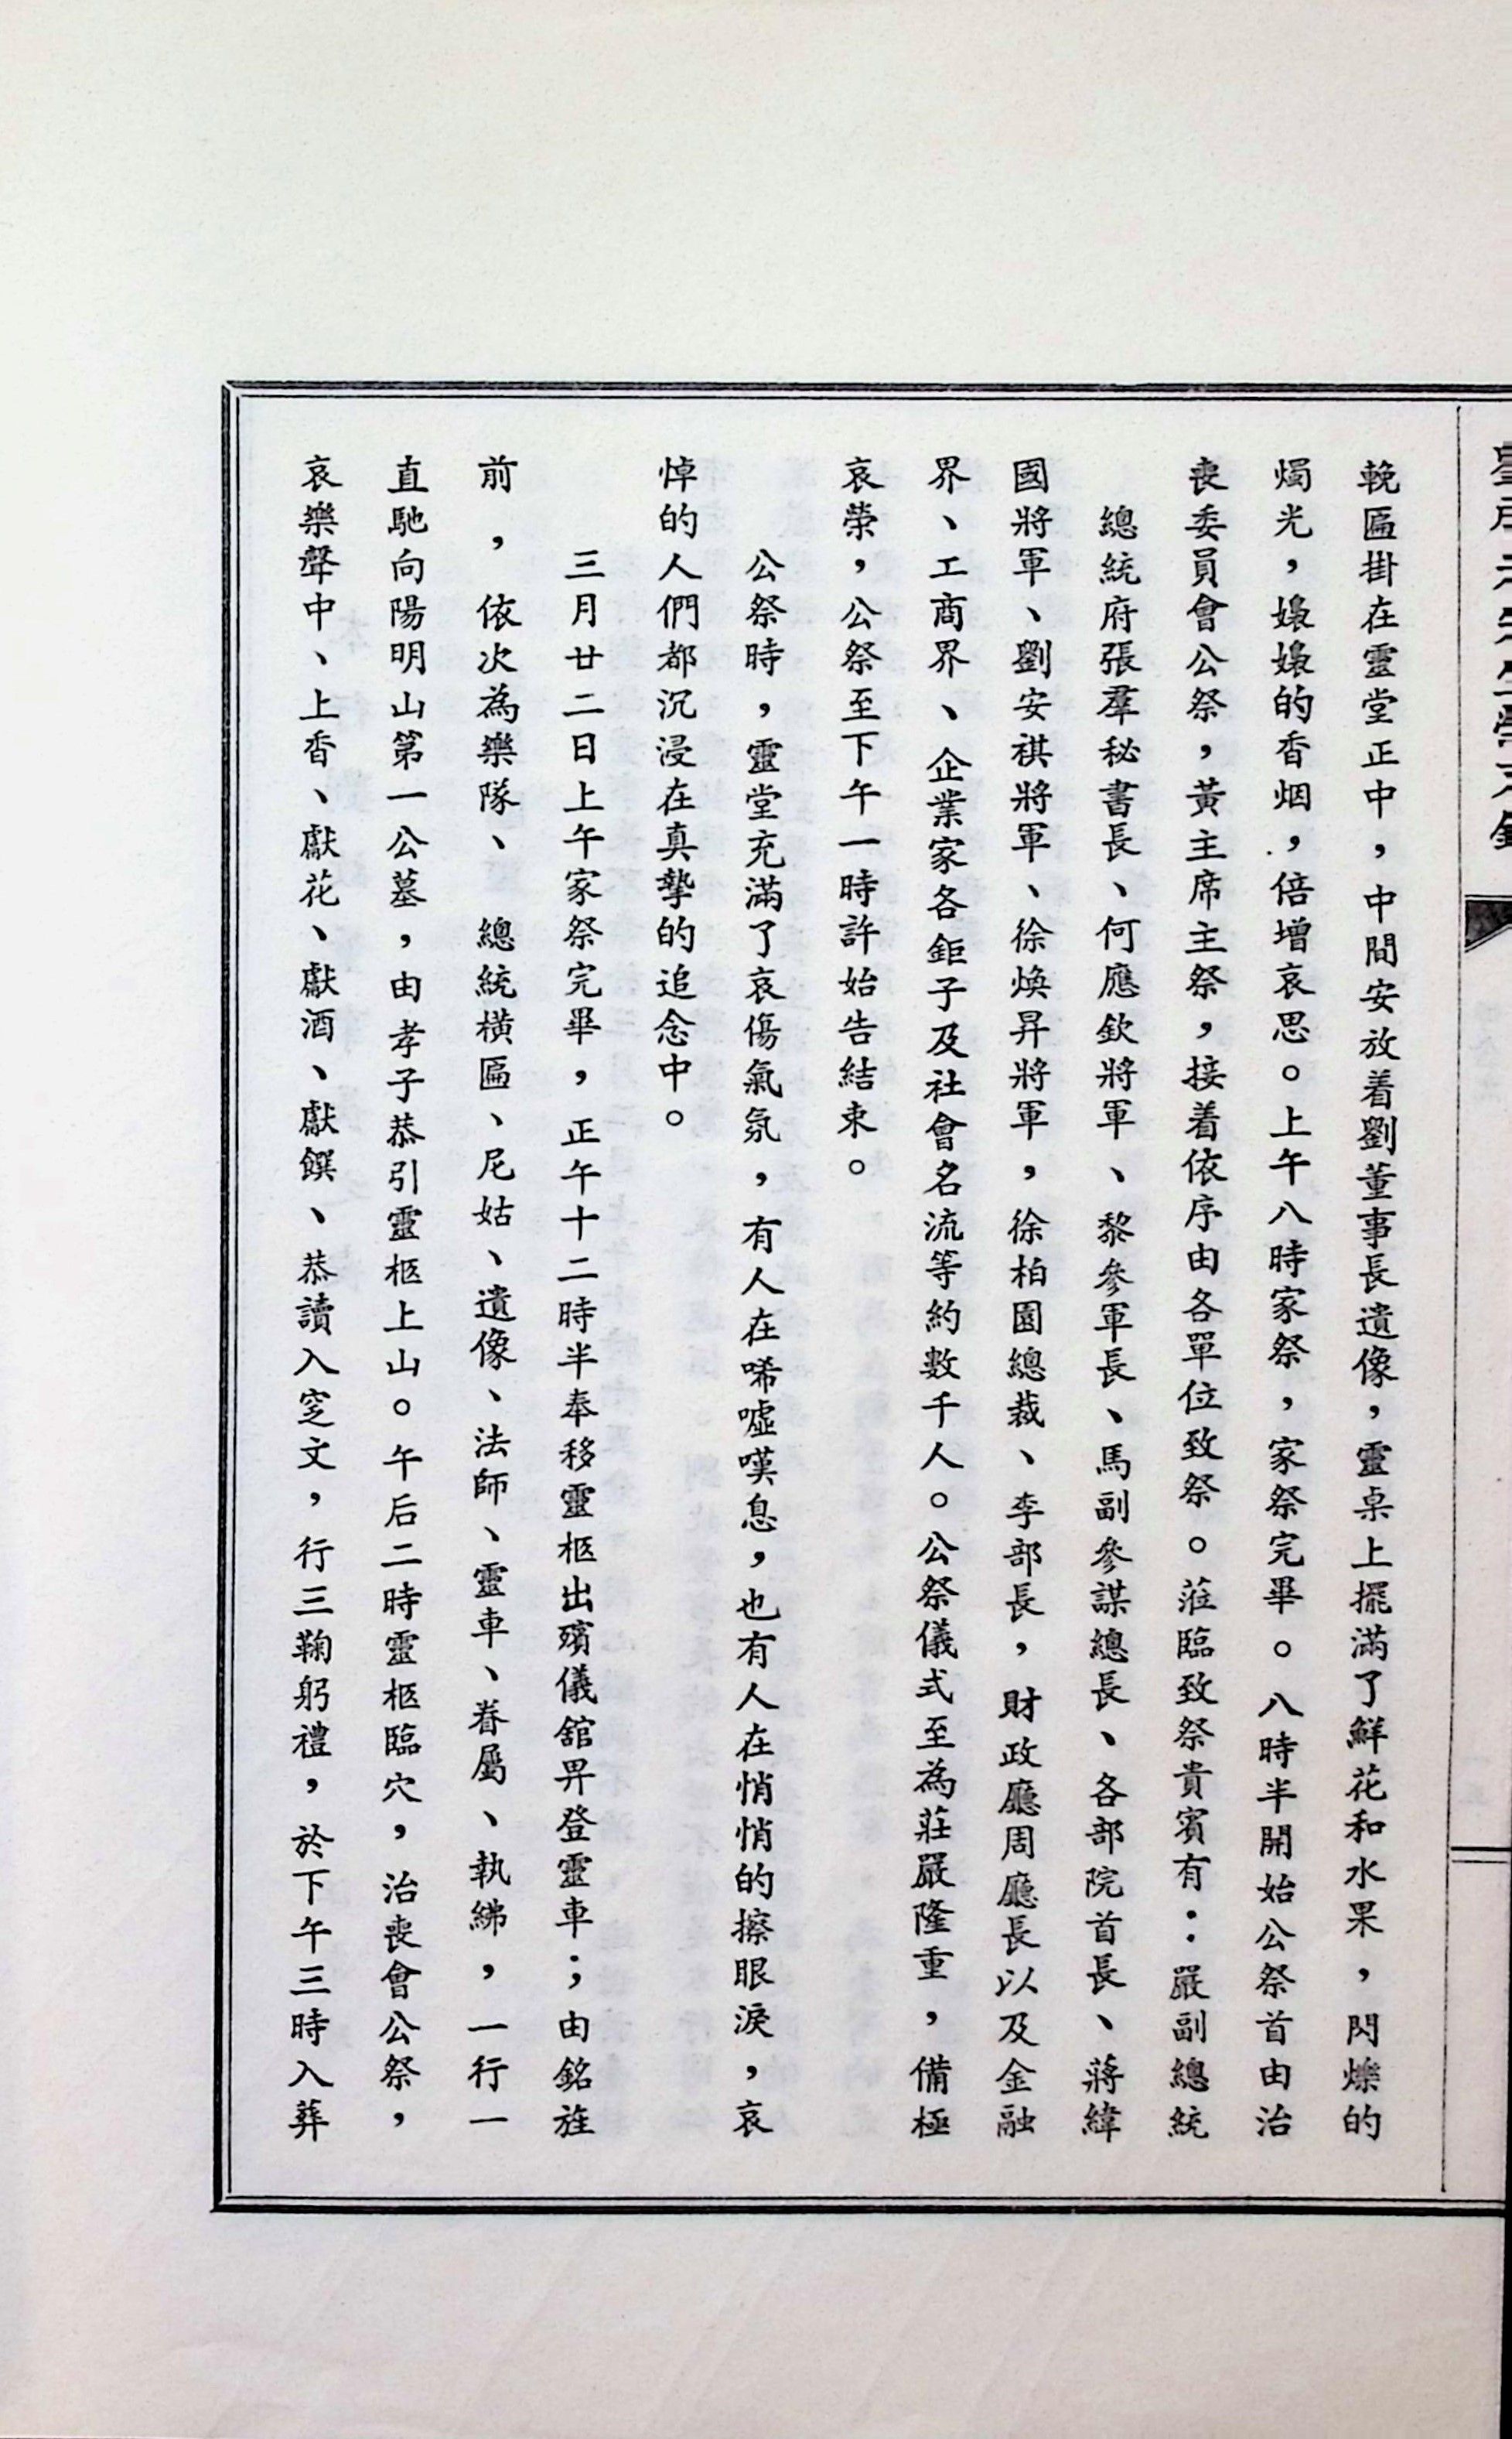 輓匾掛在靈堂正中，中間安放着劉董事長遺像，靈桌上擺滿了鮮花和水果，閃爍的
燭光，嬝嬝的香烟，倍增哀思。上午八時家祭，家祭完畢。八時半開始公祭首由治
喪委員會公祭，黃主席主祭，接着依序由各單位致祭。蒞臨致祭貴賓有：嚴副總統
總統府張羣秘書長、何應欽將軍、黎參軍長、馬副參謀總長、各部院首長、蔣緯
國將軍、劉安祺將軍、徐煥昇將軍，徐柏園總裁、李部長，財政廳周廳長以及金融
界、工商界、企業家各鉅子及社會名流等約數千人。公祭儀式至為莊嚴隆重，備極
哀榮，公祭至下午一時許始告結束。
公祭時，靈堂充滿了哀傷氣氛，有人在唏噓嘆息，也有人在悄悄的擦眼淚，哀
悼的人們都沉浸在真摯的追念中。
三月廿二日上午家祭完畢，正午十二時半奉移靈柩出殯儀舘昇登靈車；由銘旌
前，依次為樂隊、總統橫匾、尼姑、遺像、法師、靈車、眷屬、執紼，一行一
直馳向陽明山第一公墓，由孝子恭引靈柩上山。午后二時靈柩臨穴，治喪會公祭，
哀樂聲中、上香、獻花、獻酒、獻饌、恭讀入窆文，行三鞠躬禮，於下午三時入葬